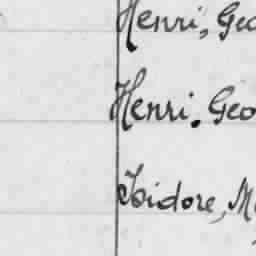 Henri, Geo
Henri. Geo
Isidore, M